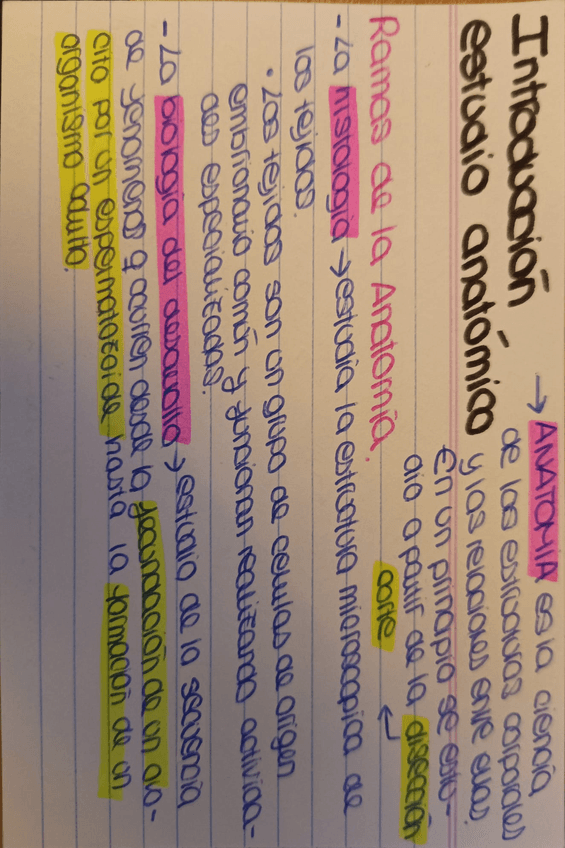 Introducción
estudio anatómico
→ ANATOMIA es la ciencia
de las estructuras corporales
y las relaciones entre ellas.
En un principio se estu-
dio a partir de la disección
corte
Ramas de la Anatomía.
- La histología → estudia la estructura microscópica de
los tejidos.
• Los tejidos son un grupo de células de origen
embrionario común y funcionan realizando activida-
des especializadas.
- La biología del desarrollo → estudio de la secuencia
de fenómenos q ocurren desde la fecundación de un ovo-
cito por un espermatozoide hasta la formación de un
organismo adulto.